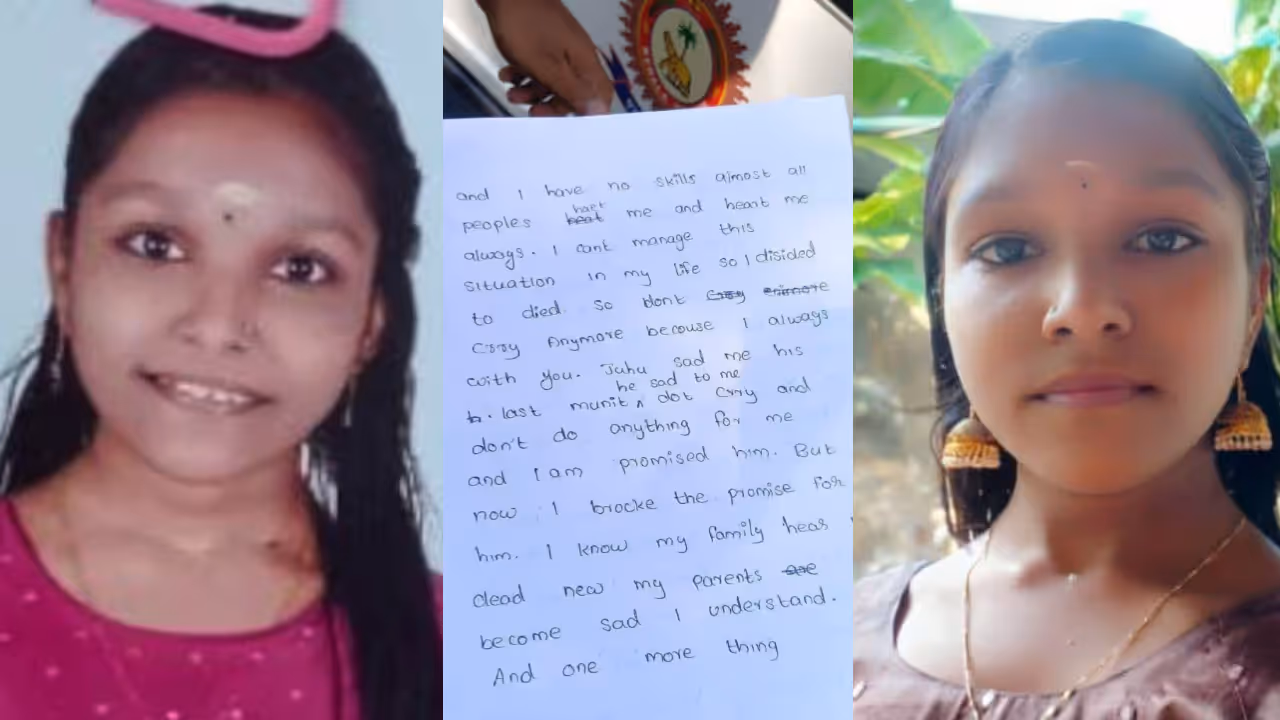 and I have no skills almost all
peoples heat haet me and heart me
always. I cant manage this
situation in my life so I disided
to died. so dont Crry enimore
Crry Anymore becouse I always
with you. Juhu sad me his
h. last munit he sad to me dot Crry and
don't do anything for me
and I am promised him. But
now I brocke the promise for
him. I know my family hear
dead new my parents are
become sad I understand.
And one more thing